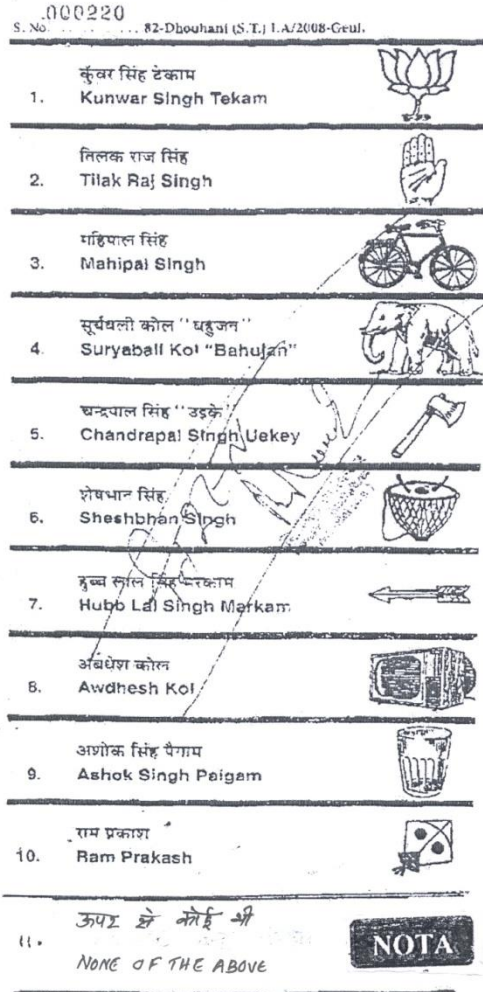 .000220
S. No. . . . . . . . . . . 82-Dhouhani (S.T.) L.A/2008-Genl.
कुँवर सिंह टेकाम
1. Kunwar Singh Tekam
तिलक राज सिंह
2. Tilak Raj Singh
महिपाल सिंह
3. Mahipal Singh
सूर्यबली कोल "बहुजन"
4. Suryabali Kol "Bahujan"
चन्द्रपाल सिंह "उइके"
5. Chandrapal Singh Uekey
शेषभान सिंह
6. Sheshbhan Singh
हुब्ब लाल सिंह मरकाम
7. Hubb Lal Singh Markam
अबधेश कोल
8. Awdhesh Kol
अशोक सिंह पैगाम
9. Ashok Singh Paigam
राम प्रकाश
10. Ram Prakash
ऊपर से कोई भी
11. NONE OF THE ABOVE
NOTA